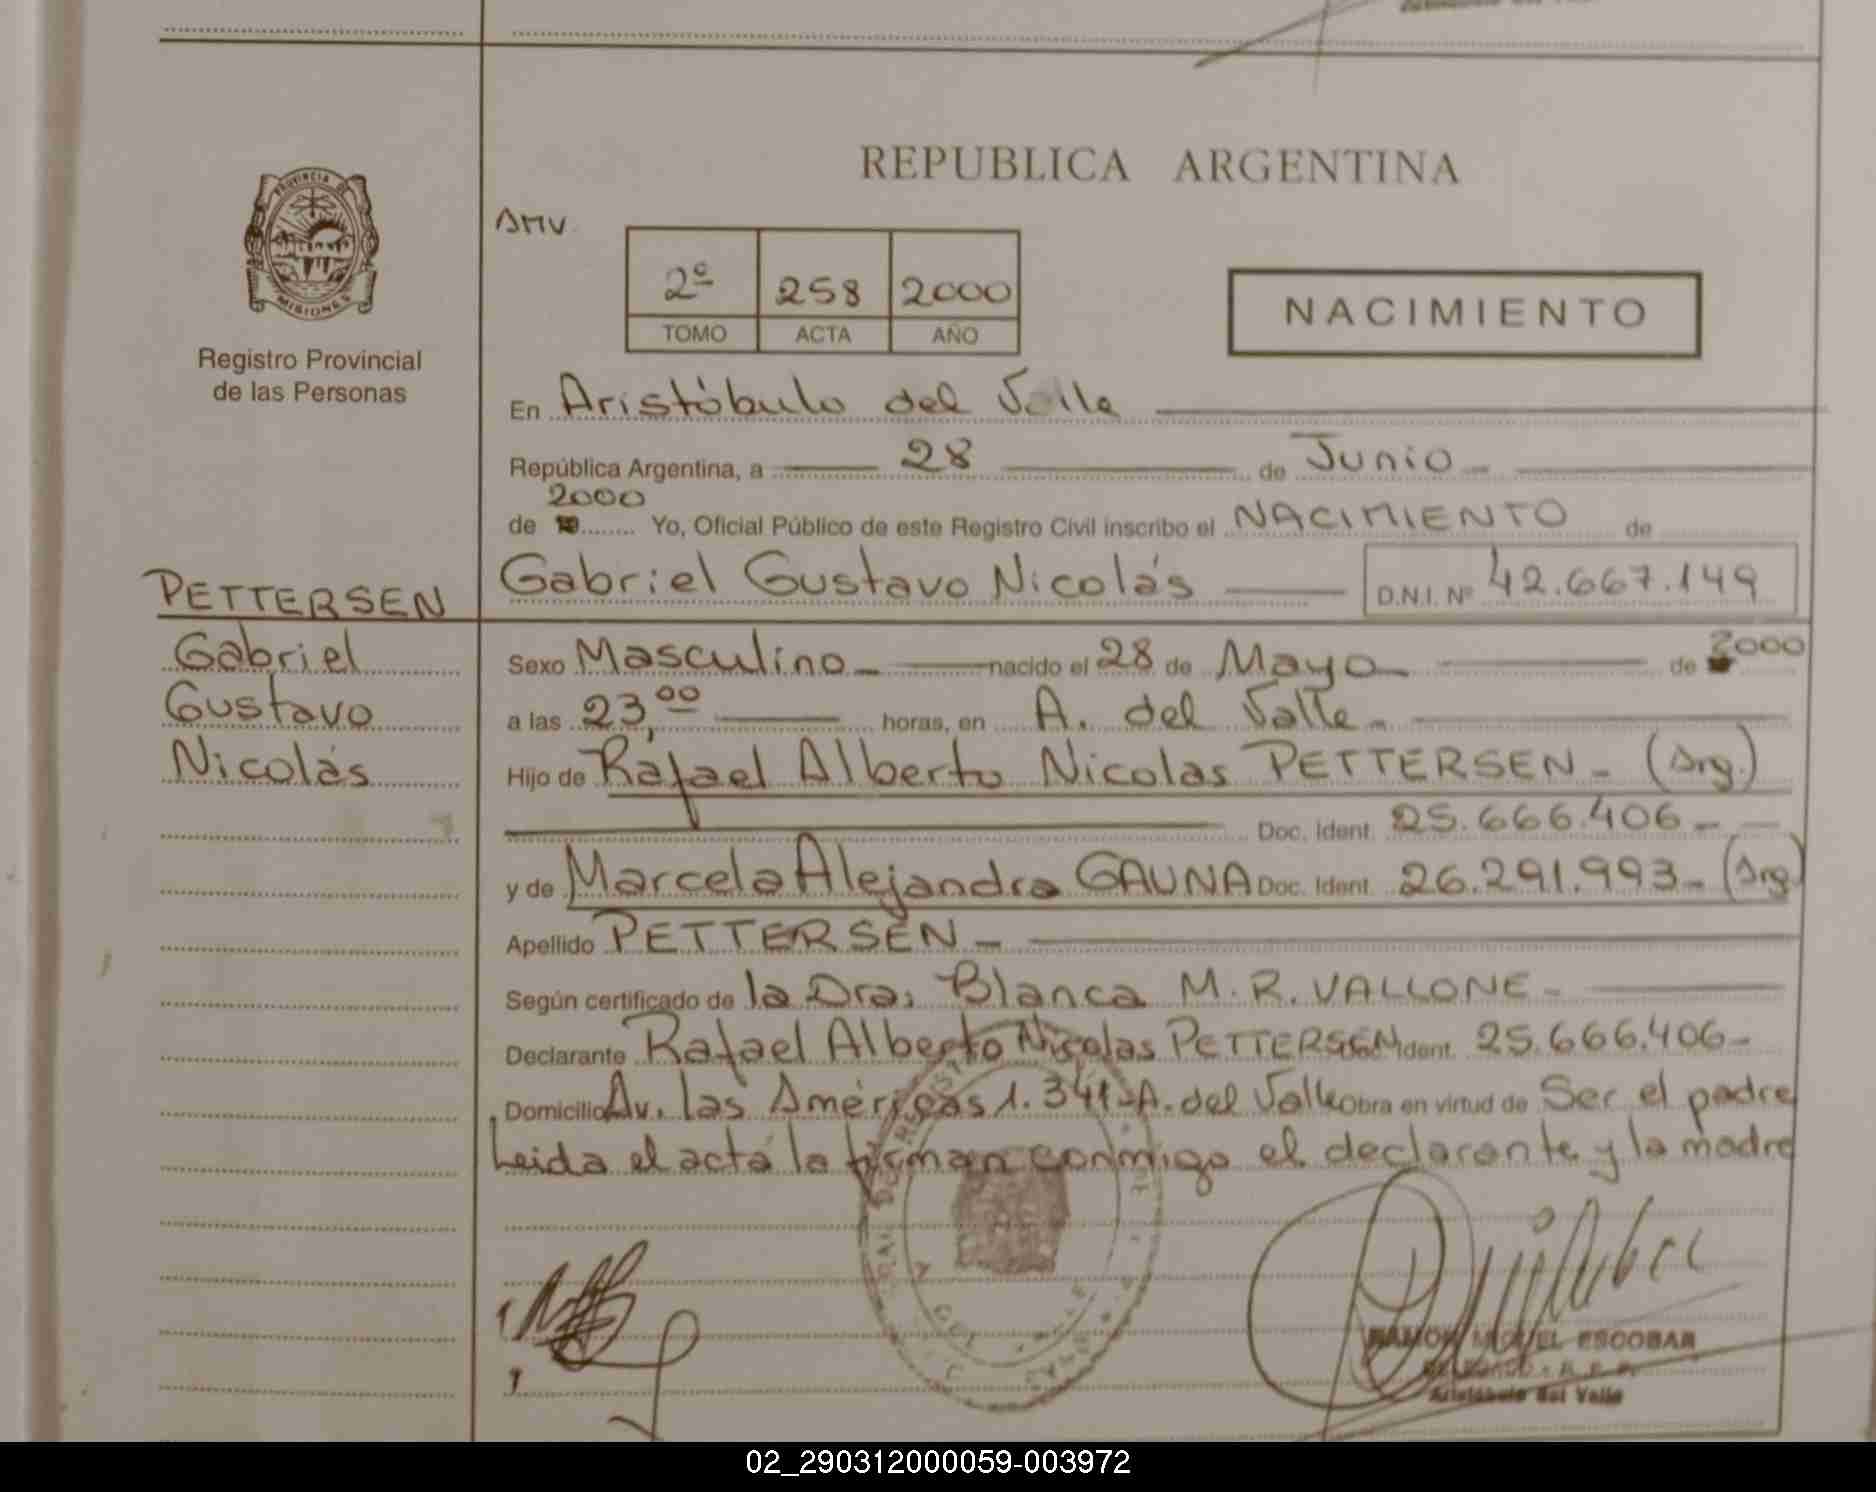 REPUBLICA ARGENTINA
PROVINCIA DE
MISIONES
Registro Provincial
de las Personas
AMV
2º 258 2000
TOMO ACTA AÑO
NACIMIENTO
En Aristóbulo del Valle
República Argentina, a 28 de Junio
2000
de 19 Yo, Oficial Público de este Registro Civil inscribo el NACIMIENTO de
PETTERSEN Gabriel Gustavo Nicolás D.N.I. Nº 42.667.149
Gabriel
Gustavo
Nicolás
Sexo Masculino nacido el 28 de Mayo de 2000
a las 23,00 horas, en A. del Valle
Hijo de Rafael Alberto Nicolas PETTERSEN - (Arg.)
Doc. Ident. 25.666.406
y de Marcela Alejandra GAUNA Doc. Ident. 26.291.993 - (Arg.)
Apellido PETTERSEN
Según certificado de la Dra. Blanca M. R. VALLONE
Declarante Rafael Alberto Nicolas PETTERSEN Doc. Ident. 25.666.406
Domicilio Av. las Américas 1.341-A. del Valle Obra en virtud de Ser el padre
Leida el acta la firman conmigo el declarante y la madre
RAMON MIGUEL ESCOBAR
Aristóbulo del Valle
02_290312000059-003972